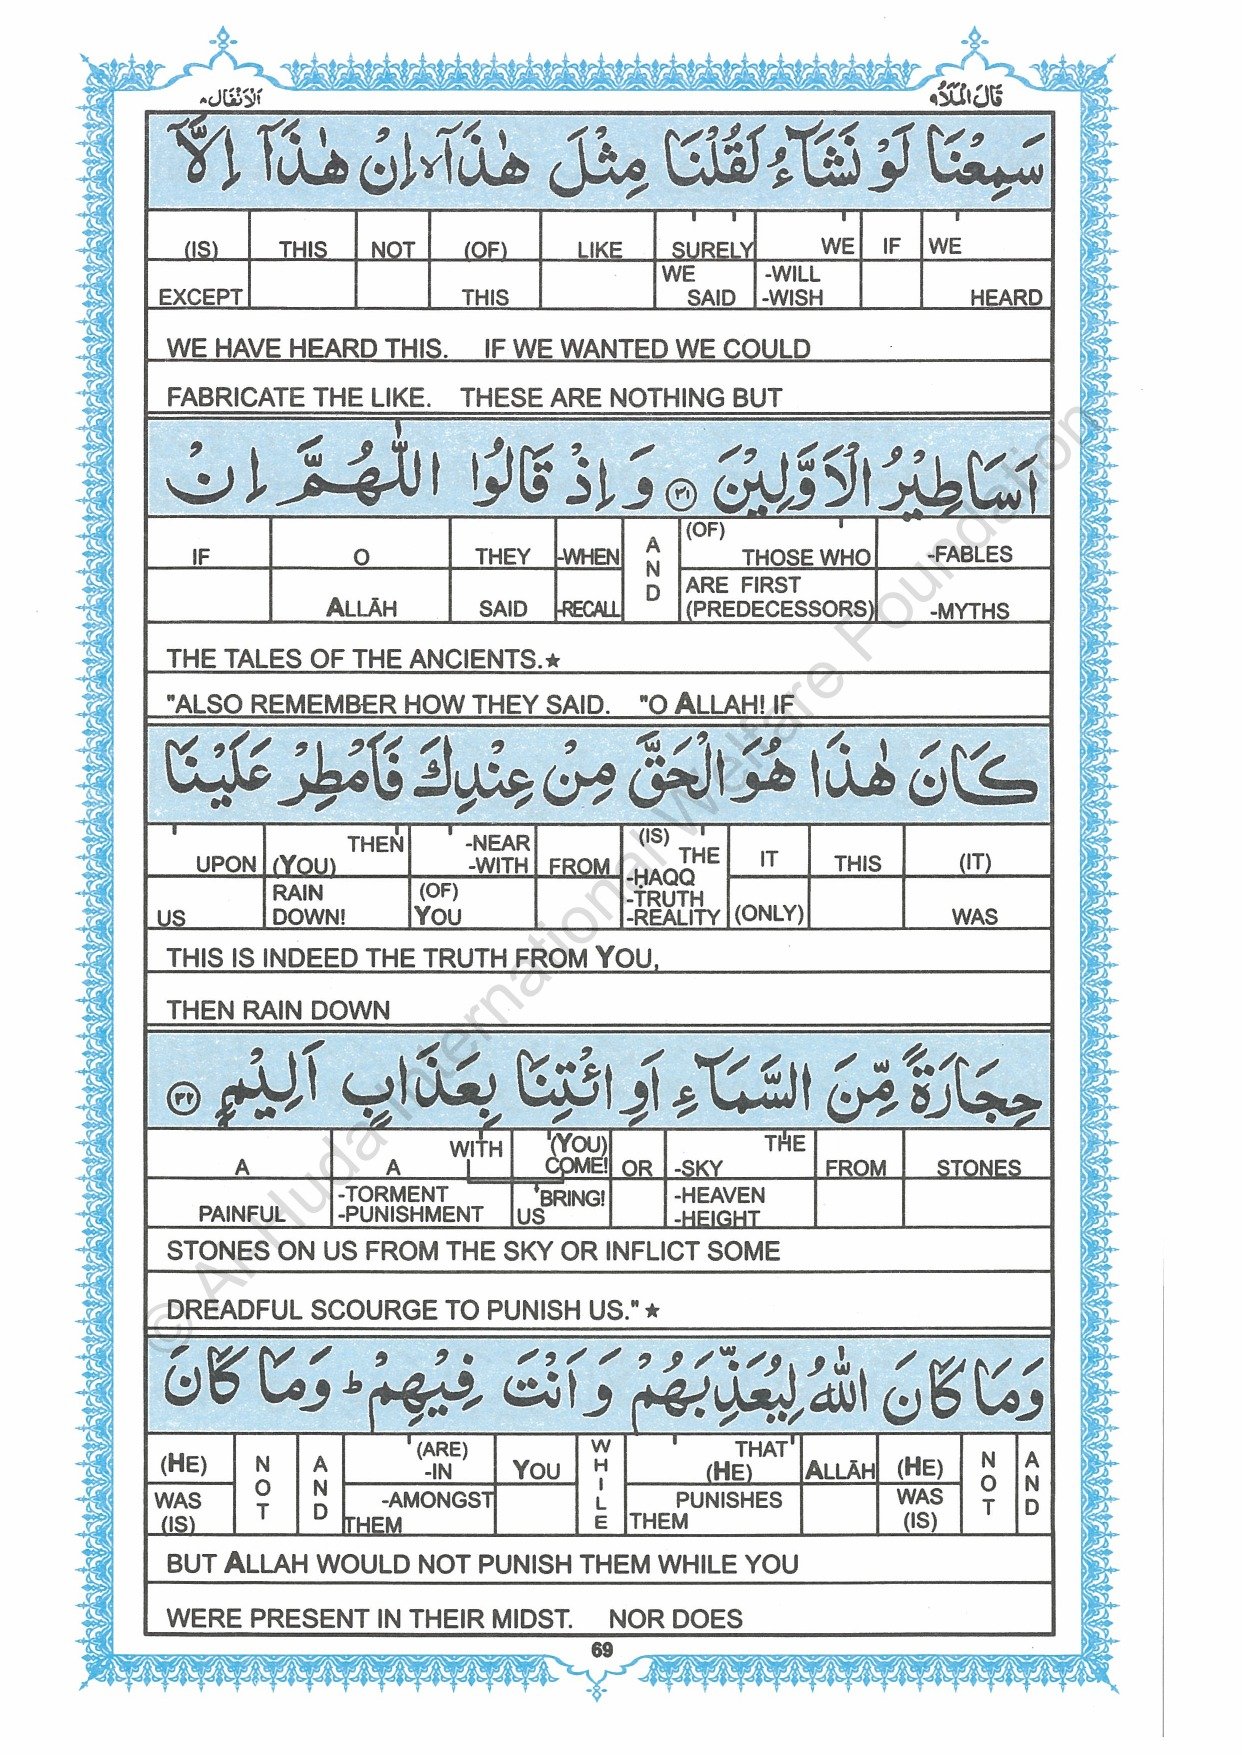 الانفال ٨ قال الملأ ٩
سَمِعْنَا لَوْ نَشَآءُ لَقُلْنَا مِثْلَ هٰذَآ ۙ اِنْ هٰذَآ اِلَّآ
(IS) THIS NOT (OF) LIKE SURELY WE IF WE
EXCEPT THIS WE SAID -WILL -WISH HEARD
WE HAVE HEARD THIS. IF WE WANTED WE COULD
FABRICATE THE LIKE. THESE ARE NOTHING BUT
اَسَاطِيْرُ الْاَوَّلِيْنَ ۝٣١ وَ اِذْ قَالُوا اللّٰهُمَّ اِنْ
IF O THEY -WHEN AND (OF) THOSE WHO -FABLES
ALLĀH SAID -RECALL ARE FIRST (PREDECESSORS) -MYTHS
THE TALES OF THE ANCIENTS.★
"ALSO REMEMBER HOW THEY SAID. "O ALLAH! IF
كَانَ هٰذَا هُوَ الْحَقَّ مِنْ عِنْدِكَ فَاَمْطِرْ عَلَيْنَا
UPON THEN (YOU) -NEAR -WITH FROM (IS) THE IT THIS (IT)
US RAIN DOWN! (OF) YOU -ḤAQQ -TRUTH -REALITY (ONLY) WAS
THIS IS INDEED THE TRUTH FROM YOU,
THEN RAIN DOWN
حِجَارَةً مِّنَ السَّمَآءِ اَوِ ائْتِنَا بِعَذَابٍ اَلِيْمٍ ۝٣٢
A A WITH (YOU) COME! OR THE -SKY FROM STONES
PAINFUL -TORMENT -PUNISHMENT BRING! US -HEAVEN -HEIGHT
STONES ON US FROM THE SKY OR INFLICT SOME
DREADFUL SCOURGE TO PUNISH US." ★
وَمَا كَانَ اللّٰهُ لِيُعَذِّبَهُمْ وَ اَنْتَ فِيْهِمْ ؕ وَمَا كَانَ
(HE) NOT AND (ARE) -IN YOU WHILE THAT (HE) ALLĀH (HE) NOT AND
WAS (IS) -AMONGST THEM PUNISHES THEM WAS (IS)
BUT ALLAH WOULD NOT PUNISH THEM WHILE YOU
WERE PRESENT IN THEIR MIDST. NOR DOES
69
© Al Huda International Welfare Foundation